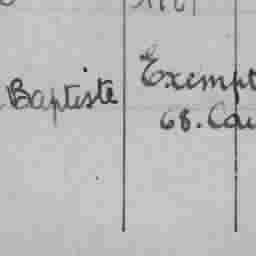 Baptiste
Exempt
68. Cau